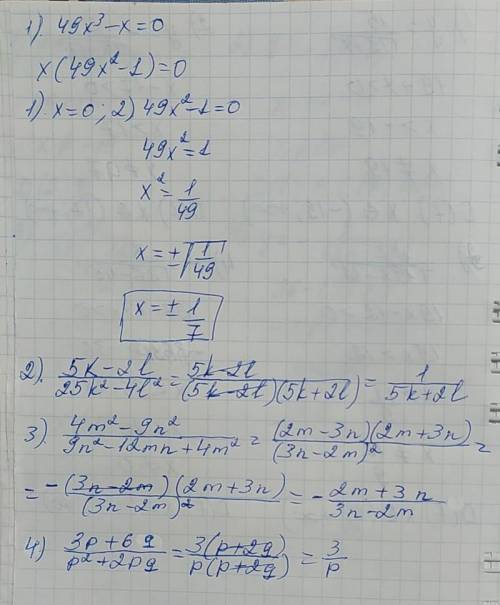 1). 49x³-x=0
x(49x²-1)=0
1) x=0; 2) 49x²-1=0
49x²=1
x²=1/49
x=±√(1/49)
x=±1/7
2). (5k-2l)/(25k²-4l²)=(5k-2l)/((5k-2l)(5k+2l))=1/(5k+2l)
3). (4m²-9n²)/(9n²-12mn+4m²)=((2m-3n)(2m+3n))/(3n-2m)²=
=(-(3n-2m)(2m+3n))/(3n-2m)²=-(2m+3n)/(3n-2m)
4) (3p+6q)/(p²+2pq)=(3(p+2q))/(p(p+2q))=3/p